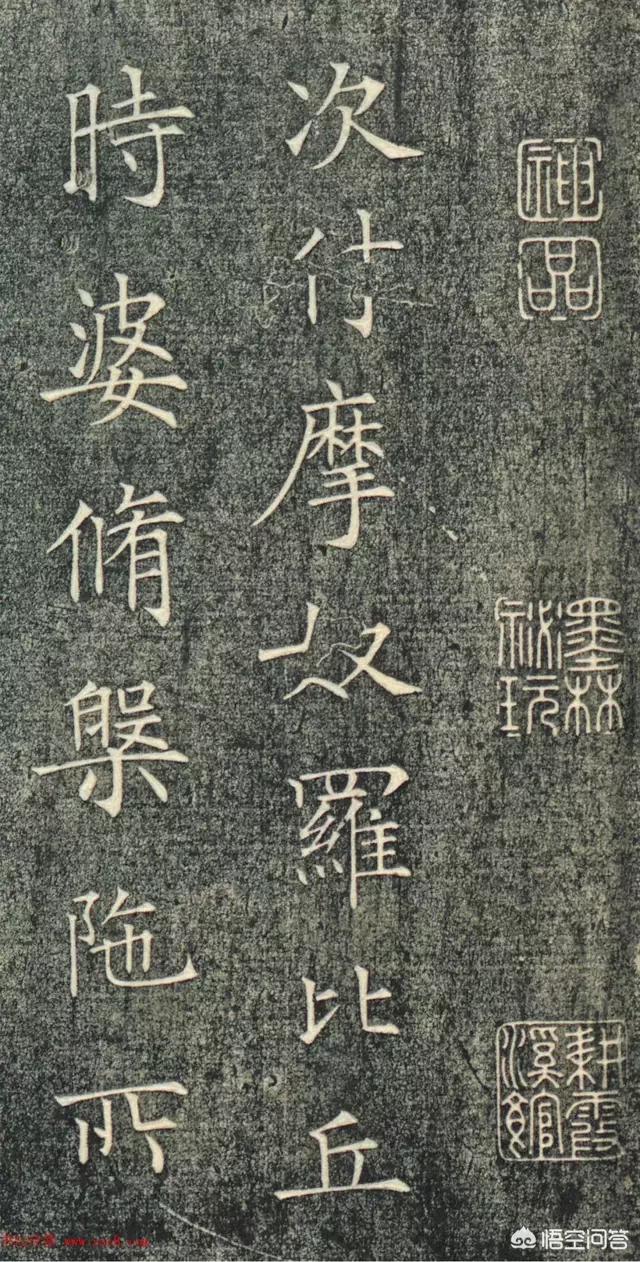 神品
墨林祕玩
耕霞溪館
次付摩奴羅比丘
時婆脩槃陁所
悟空问答